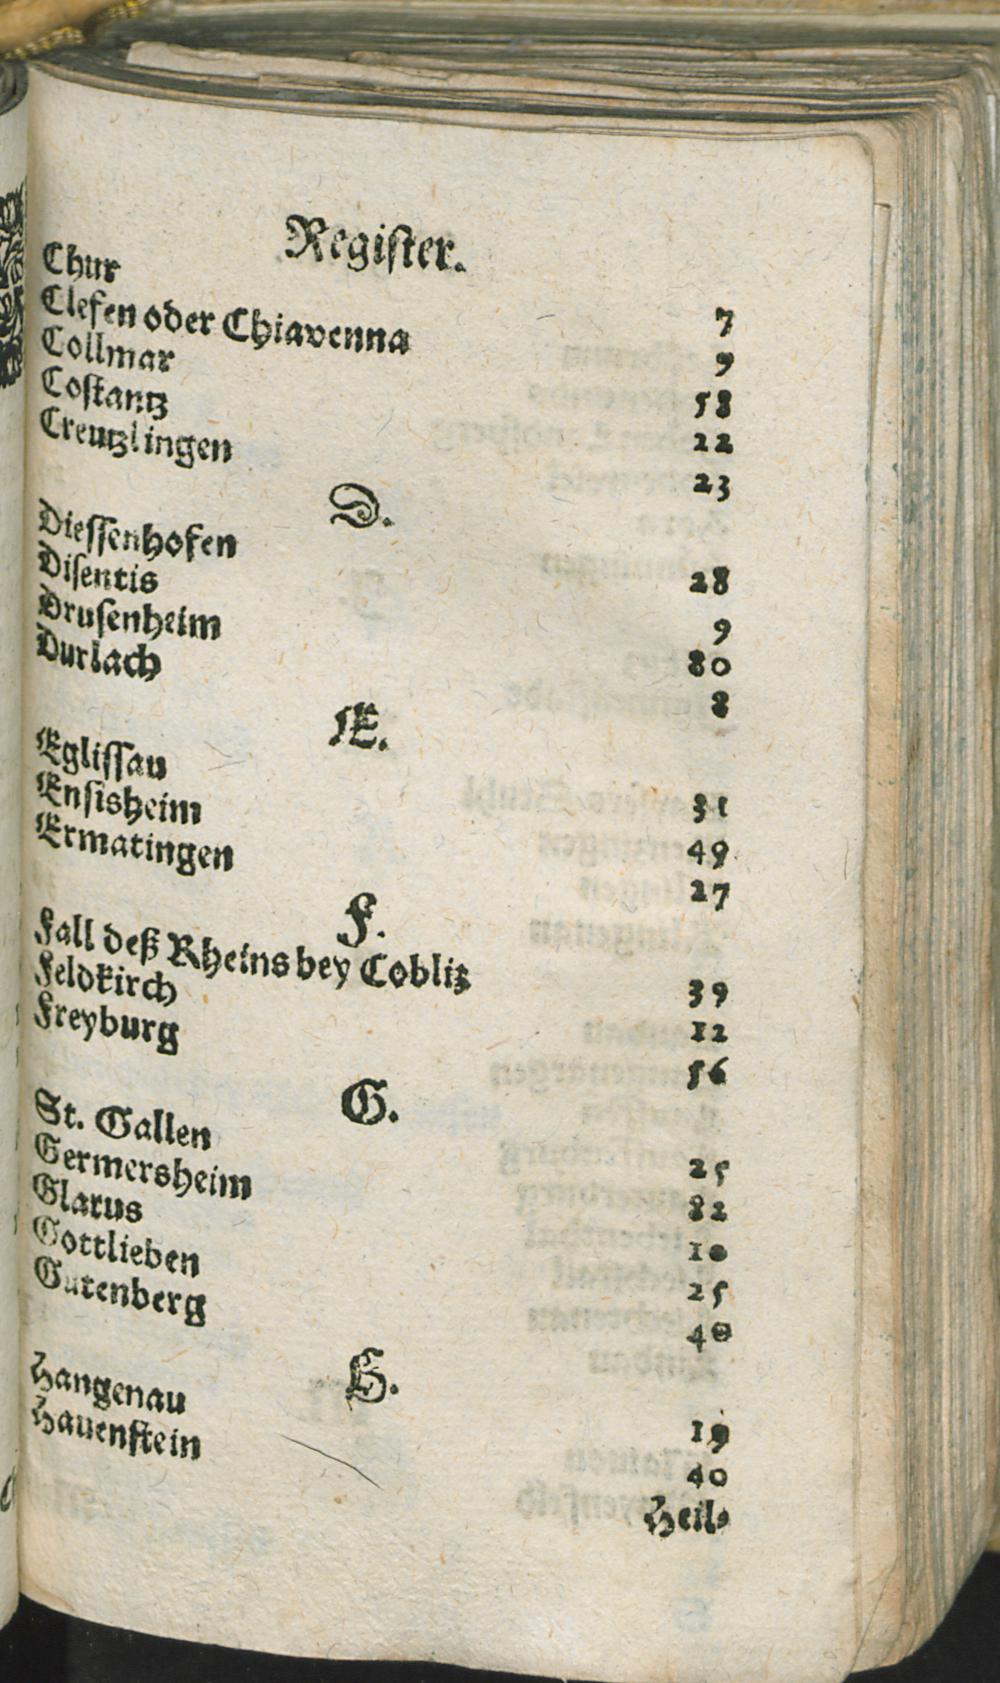 Register.
Chur 7
Clefen oder Chiavenna 9
Collmar 58
Costantz 22
Creutzlingen 23
D.
Diessenhofen 28
Disentis 9
Drusenheim 80
Durlach 8
E.
Eglissau 31
Ensisheim 49
Ermatingen 27
F.
Fall deß Rheins bey Coblitz 39
Feldkirch 12
Freyburg 56
G.
St. Gallen 25
Germersheim 82
Glarus 10
Gottlieben 25
Gutenberg 40
H.
Hangenau 19
Hauenstein 40
Heil-